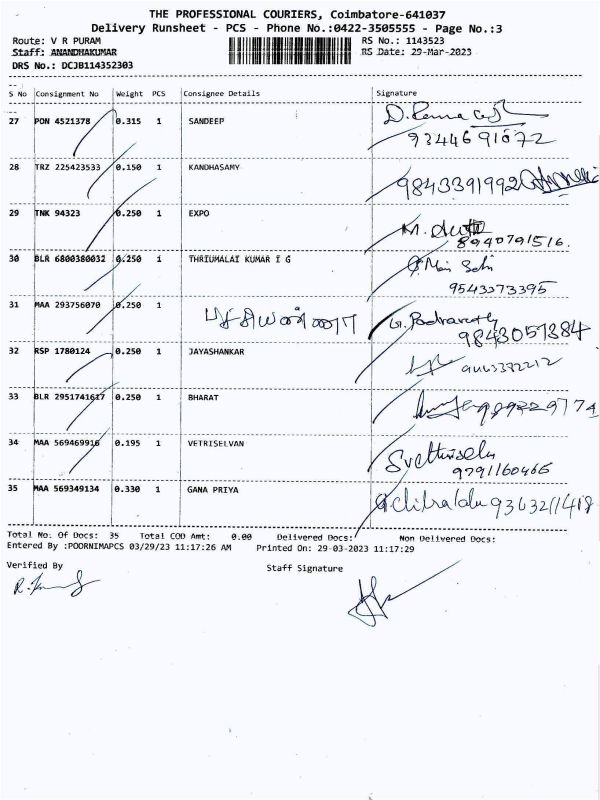 THE PROFESSIONAL COURIERS, Coimbatore-641037
Delivery Runsheet - PCS - Phone No.:0422-3505555 - Page No.:3
Route: V R PURAM RS No.: 1143523
Staff: ANANDHAKUMAR RS Date: 29-Mar-2023
DRS No.: DCJB114352303
S No Consignment No Weight PCS Consignee Details Signature
27 PON 4521378 0.315 1 SANDEEP
9344691072
28 TRZ 225423533 0.150 1 KANDHASAMY
9843391992
29 TNK 94323 0.250 1 EXPO
8940791516.
30 BLR 6800380032 0.250 1 THRIUMALAI KUMAR I G
9543373395
31 MAA 293756070 0.250 1
9843057384
32 RSP 1780124 0.250 1 JAYASHANKAR
33 BLR 2951741617 0.250 1 BHARAT
34 MAA 569469916 0.195 1 VETRISELVAN
9791160466
35 MAA 569349134 0.330 1 GANA PRIYA
Total No. Of Docs: 35 Total COD Amt: 0.00 Delivered Docs: Non Delivered Docs:
Entered By :POORNIMAPCS 03/29/23 11:17:26 AM Printed On: 29-03-2023 11:17:29
Verified By Staff Signature